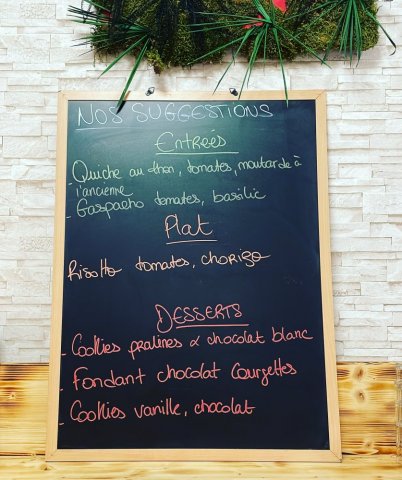 NOS SUGGESTIONS
Entrees
- Quiche au thon, tomates, moutarde à
l'ancienne
- Gaspacho tomates, basilic
Plat
Risotto tomates, chorizo
DESSERTS
- Cookies pralines & chocolat blanc
- Fondant chocolat courgettes
- Cookies vanille, chocolat